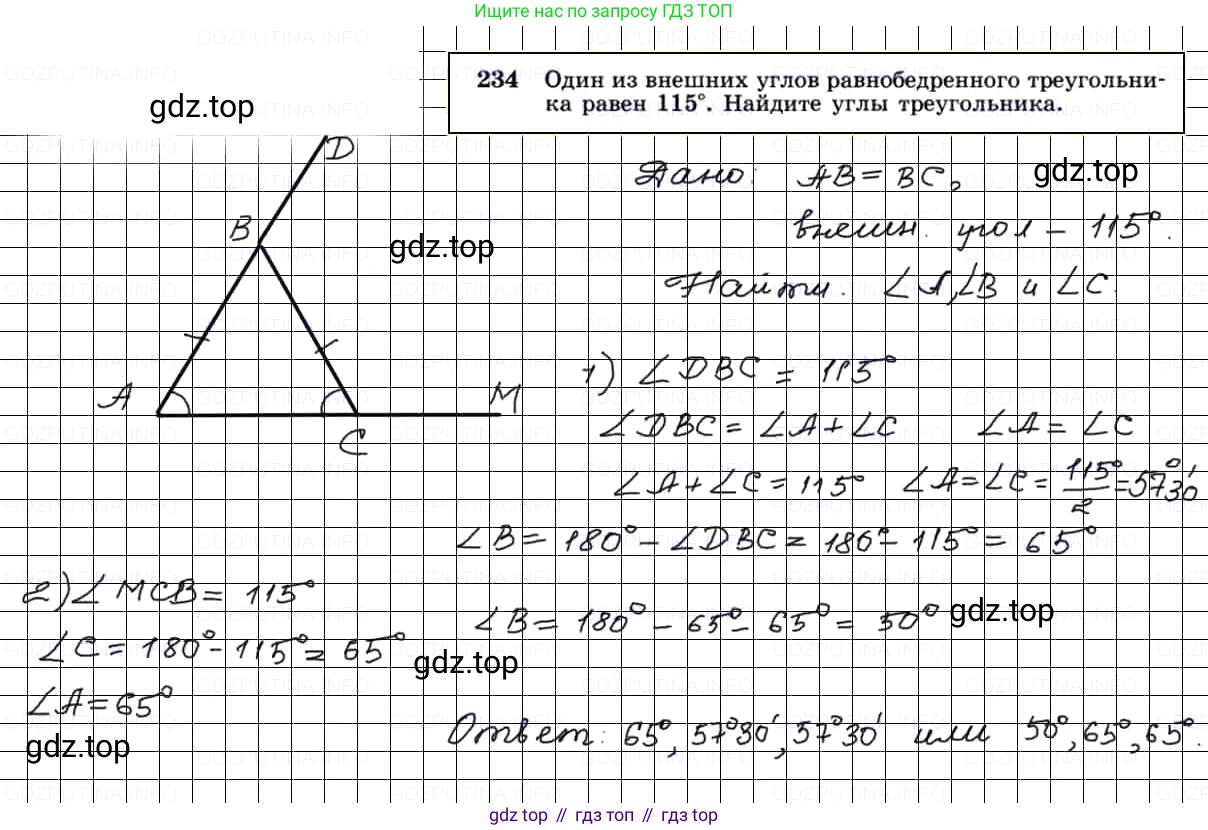 Ищите нас по запросу ГДЗ ТОП
234 Один из внешних углов равнобедренного треугольни-
ка равен 115°. Найдите углы треугольника.
gdz.top
D
B
A
C
M
Дано: AB = BC,
gdz.top
внешн. угол – 115°.
gdz.top
Найти: ∠A, ∠B и ∠C.
1) ∠DBC = 115°
∠DBC = ∠A + ∠C ∠A = ∠C
∠A + ∠C = 115° ∠A = ∠C = 115°/2 = 57°30'
∠B = 180° – ∠DBC = 180° – 115° = 65°
2) ∠MCB = 115°
∠C = 180° – 115° = 65°
∠A = 65°
∠B = 180° – 65° – 65° = 50°
gdz.top
gdz.top
gdz.top
Ответ: 65°, 57°30', 57°30' или 50°, 65°, 65°.
gdz top // гдз топ // гдз top